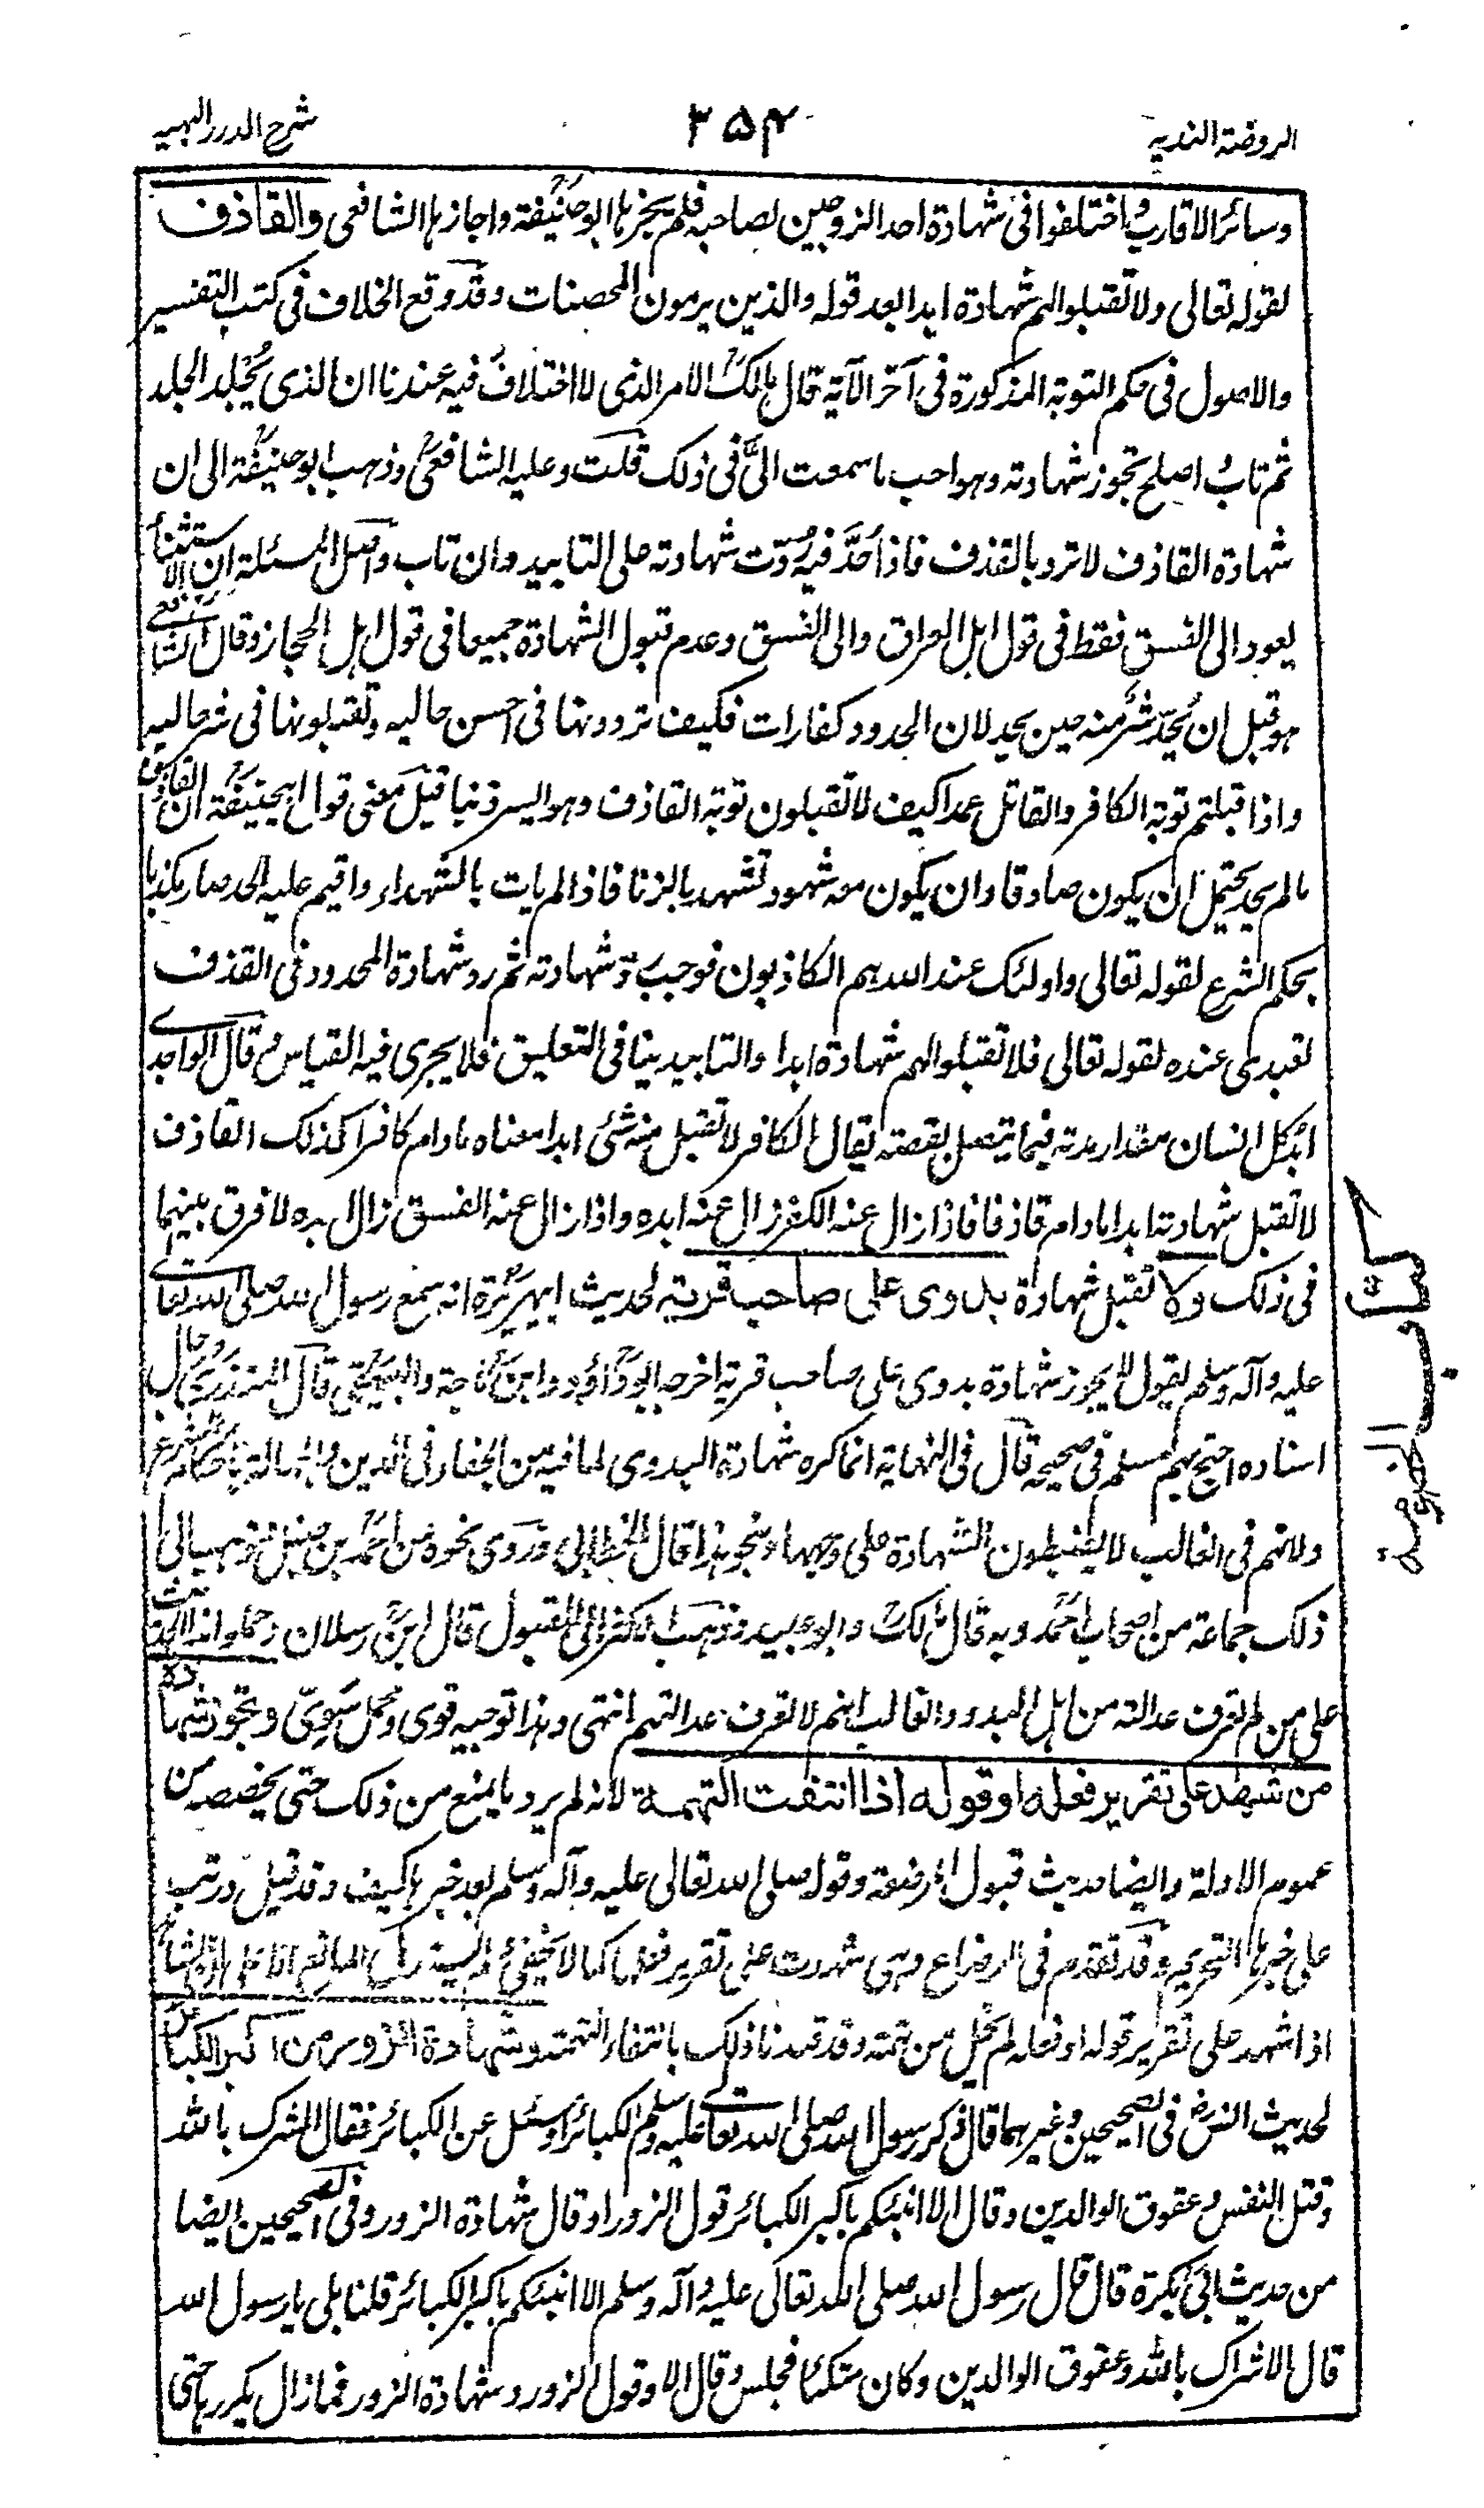 الروضة الندية
٣٥٤
شرح الدرر البهيه
وسائر الاقارب واختلفوا فى شهادة احد الزوجين لصاحبه فلم يجزها ابو حنيفة واجازها الشافعى والقاذف
لقوله تعالى ولا تقبلوا لهم شهادة ابدا بعد قوله والذين يرمون المحصنات وقد وقع الخلاف فى كتب التفسير
والاصول فى حكم التوبة المذكورة فى آخر الآية قال مالك الامر الذى لا اختلاف فيه عندنا ان الذى يُجلد الجلد
ثم تاب واصلح تجوز شهادته وهو احب ما سمعت الىَّ فى ذلك قلت وعليه الشافعى وذهب ابو حنيفة الى ان
شهادة القاذف لا ترد بالقذف فاذا حُدَّ فيه رُدّت شهادته على التابيد وان تاب واصل المسئلة ان الاستثناء
يعود الى الفسق فقط فى قول اهل العراق والى الفسق وعدم قبول الشهادة جميعا فى قول اهل الحجاز وقال الشافعى
هو قبل ان يُحدّ شر منه حين يحد لان الحدود كفارات فكيف تردونها فى احسن حاليه وتقبلونها فى شر حاليه
واذا قبلتم توبة الكافر والقاتل عمدا كيف لا تقبلون توبة القاذف وهو ايسر ذنبا قيل معنى قول ابيحنيفة ان القاذف
ما لم يحد يحتمل ان يكون صادقا وان يكون معه شهود تشهد بالزنا فاذا لم يات بالشهداء واقيم عليه الحد صار مكذبا
بحكم الشرع لقوله تعالى واولئك عند الله هم الكاذبون فوجب رد شهادته ثم رد شهادة المحدود فى القذف
تعبدى عنده لقوله تعالى فلا تقبلوا لهم شهادة ابدا والتابيد ينافى التعليق فلا يجرى فيه القياس قال الواحدى
ابد كل انسان مقدار مدته فيما يتصل بقصته يقال الكافر لا تقبل منه شئ ابدا معناه مادام كافرا كذلك القاذف
لا تقبل شهادته ابدا مادام قاذفا فاذا زال عنه الكفر زال عنه ابده واذا زال عنه الفسق زال ابده لا فرق بينهما
فى ذلك ولا تقبل شهادة بدوى على صاحب قرية لحديث ابيهريرة انه سمع رسول الله صلى الله تعالى
عليه وآله وسلم يقول لا يجوز شهادة بدوى على صاحب قرية اخرجه ابو داؤد وابن ماجة والبيهقى قال المنذرى رجال
اسناده احتج بهم مسلم فى صحيحه قال فى النهاية انما كره شهادة البدوى لما فيه من الجفاء فى الدين والجهالة باحكام الشرع
ولانهم فى الغالب لا يضبطون الشهادة على وجهها وبنحو هذا قال الخطابى وروى نحوه عن احمد بن حنبل فذهب الى
ذلك جماعة من اصحاب احمد وبه قال مالك وابو عبيد وذهب الاكثر الى القبول قال ابن رسلان وحملوا هذا الحديث
على من لم تعرف عدالته من اهل البدو والغالب انهم لا تعرف عدالتهم انتهى وهذا توجيه قوى ومحمل سَوِىّ وتجوز شهادة
من شهد على تقرير فعله او قوله اذا انتفت التهمة لانه لم يرد ما يمنع من ذلك حتى يخصصه من
عموم الادلة وايضا حديث قبول المرضعة وقوله صلى الله تعالى عليه وآله وسلم بعد خبرها كيف وقد قيل ورتب
على خبرها التحريم وقد تقدم فى الرضاع وهى شهدت على تقرير فعلها كما لا يخفى
اذا شهد على تقرير قوله او فعله لم يخل من تهمة وقد قيدنا ذلك بانتفاء التهمة وشهادة الزور من اكبر الكبائر
لحديث انس فى الصحيحين وغيرهما قال ذكر رسول الله صلى الله تعالى عليه وسلم الكبائر او سئل عن الكبائر فقال الشرك بالله
وقتل النفس وعقوق الوالدين وقال الا انبئكم باكبر الكبائر قول الزور او قال شهادة الزور وفى الصحيحين ايضا
من حديث ابى بكرة قال قال رسول الله صلى الله تعالى عليه وآله وسلم الا انبئكم باكبر الكبائر قلنا بلى يا رسول الله
قال الاشراك بالله وعقوق الوالدين وكان متكئا فجلس وقال الا وقول الزور وشهادة الزور فما زال يكررها حتى